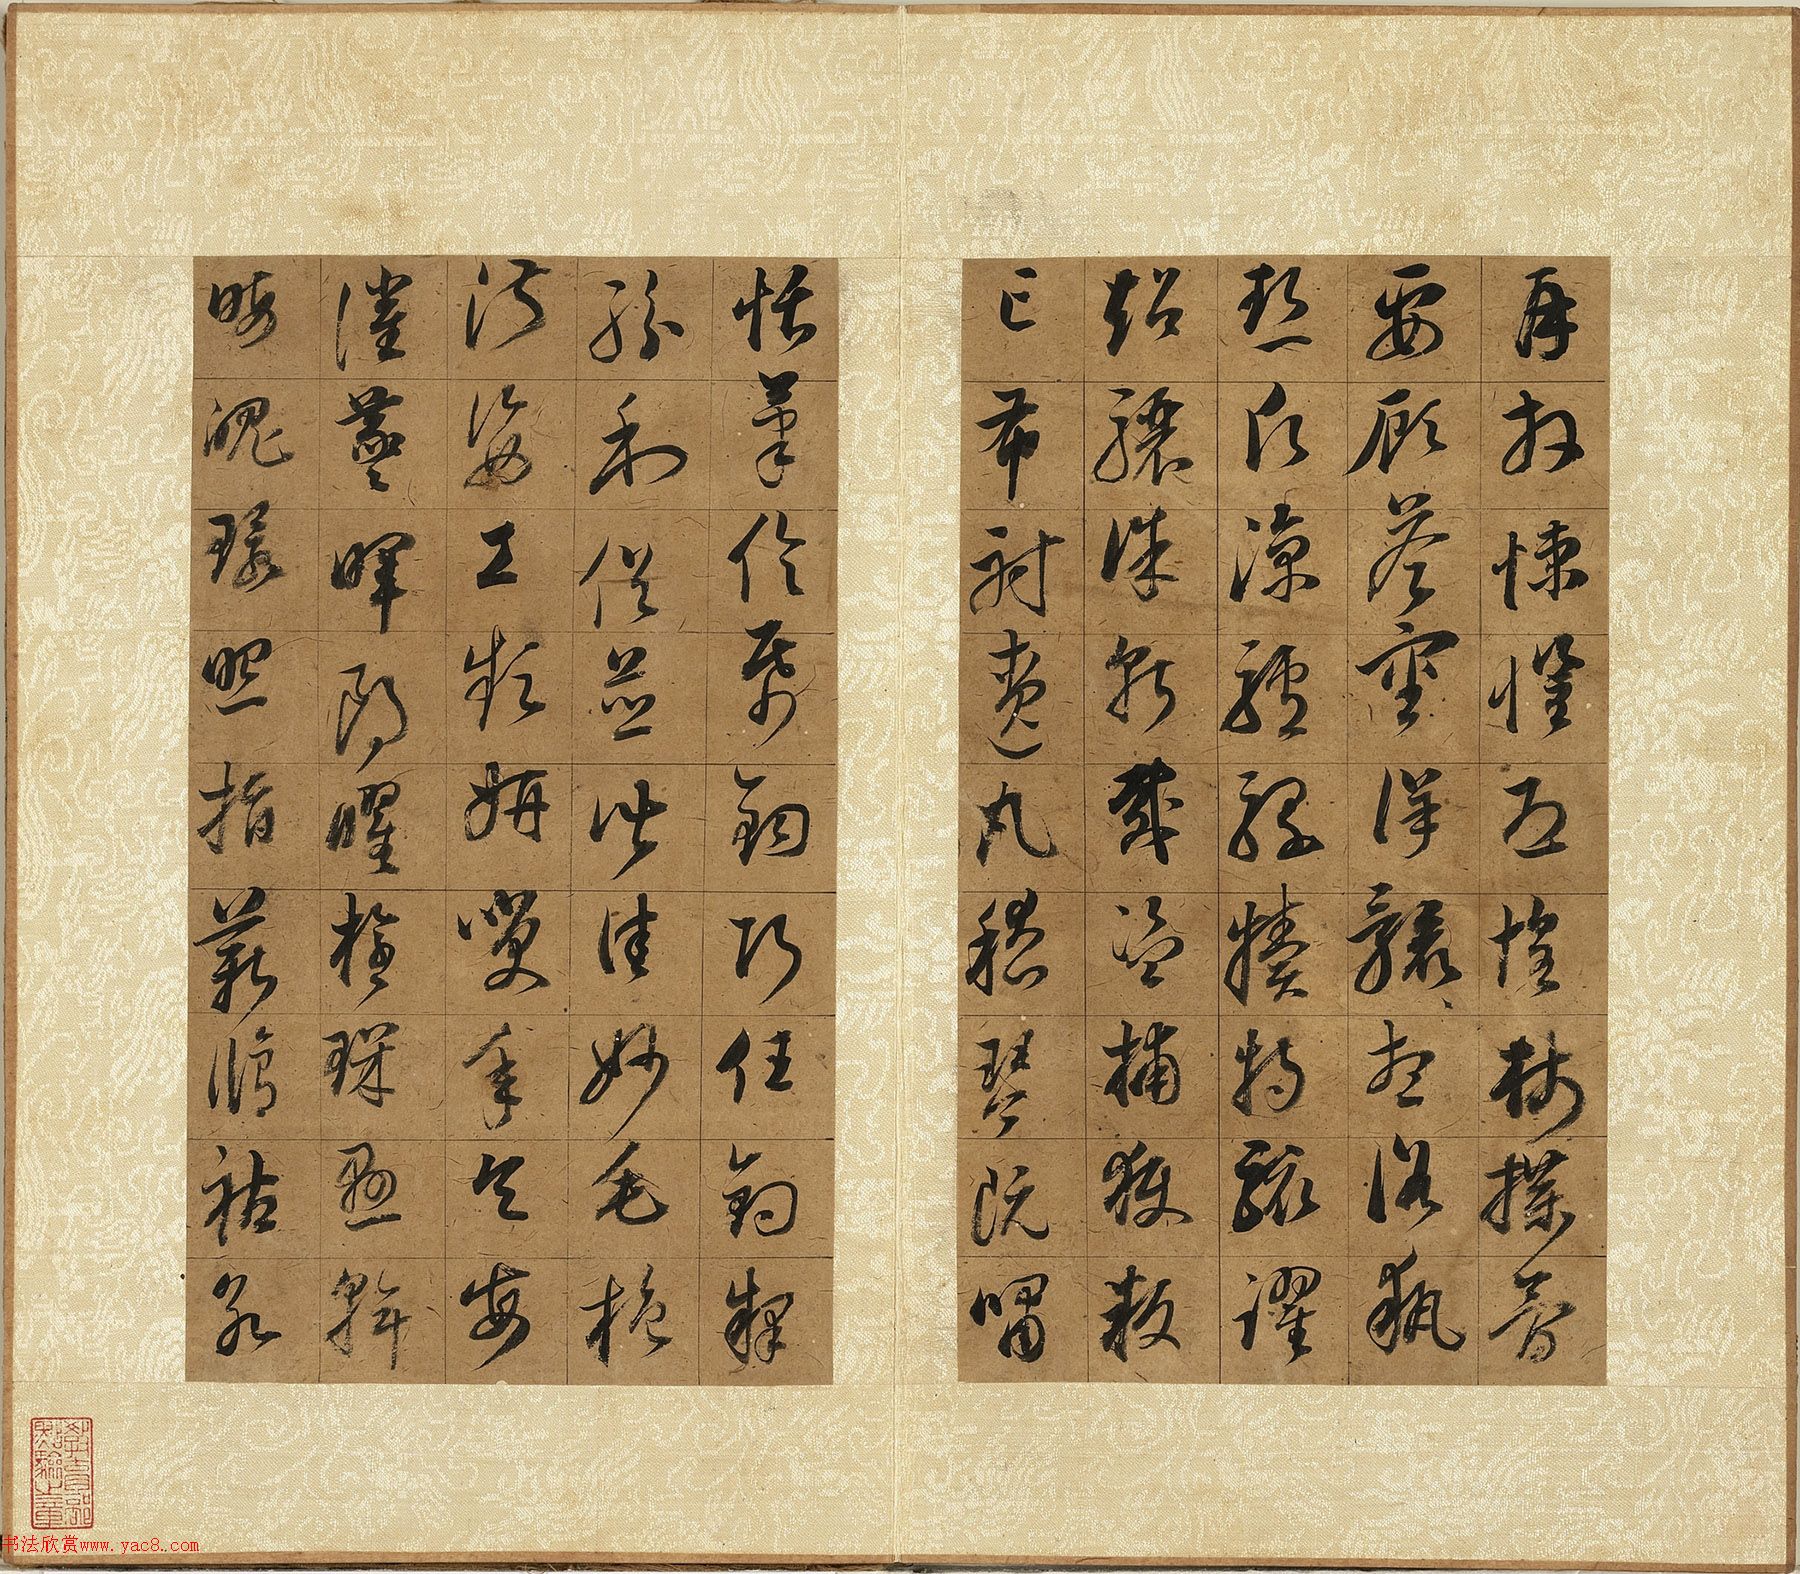 再拜悚懼恐惶牋牒簡
要顧答審詳骸想浴執
熱願涼驢騾犢特駭躍
超驤誅斬賊盜捕獲叛
亡布射遼丸嵇琴阮嘯
恬筆倫紙鈞巧任釣釋
紛利俗並皆佳妙毛施
淑姿工顰妍笑年矢每
催羲暉朗曜璇璣懸斡
晦魄環照指薪修祜永
教育部點驗之章
书法欣赏www.yac8.com